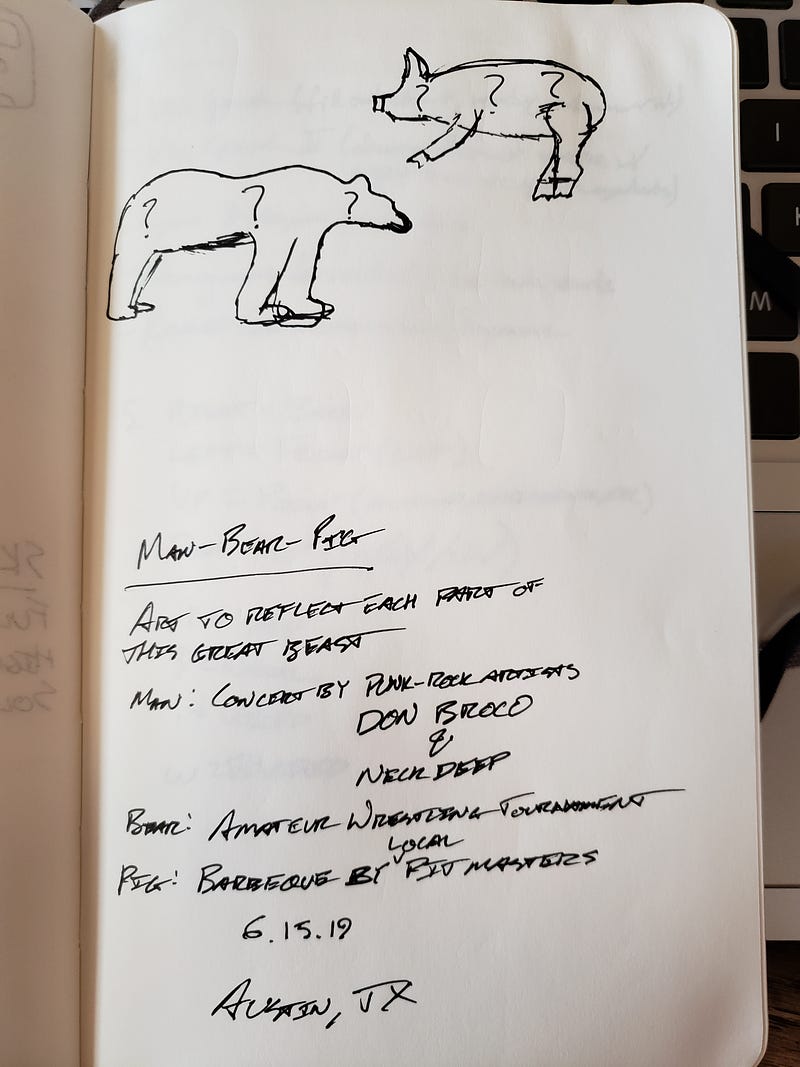 ? ? ?
? ? ?
I
K
W
MAN-BEAR-PIG
ART TO REFLECT EACH PART OF
THIS GREAT BEAST
MAN: CONCERT BY PUNK-ROCK ARTISTS
DON BROCO
&
NECK DEEP
BEAR: AMATEUR WRESTLING TOURNAMENT
LOCAL
PIG: BARBEQUE BY PIT MASTERS
6.15.19
AUSTIN, TX